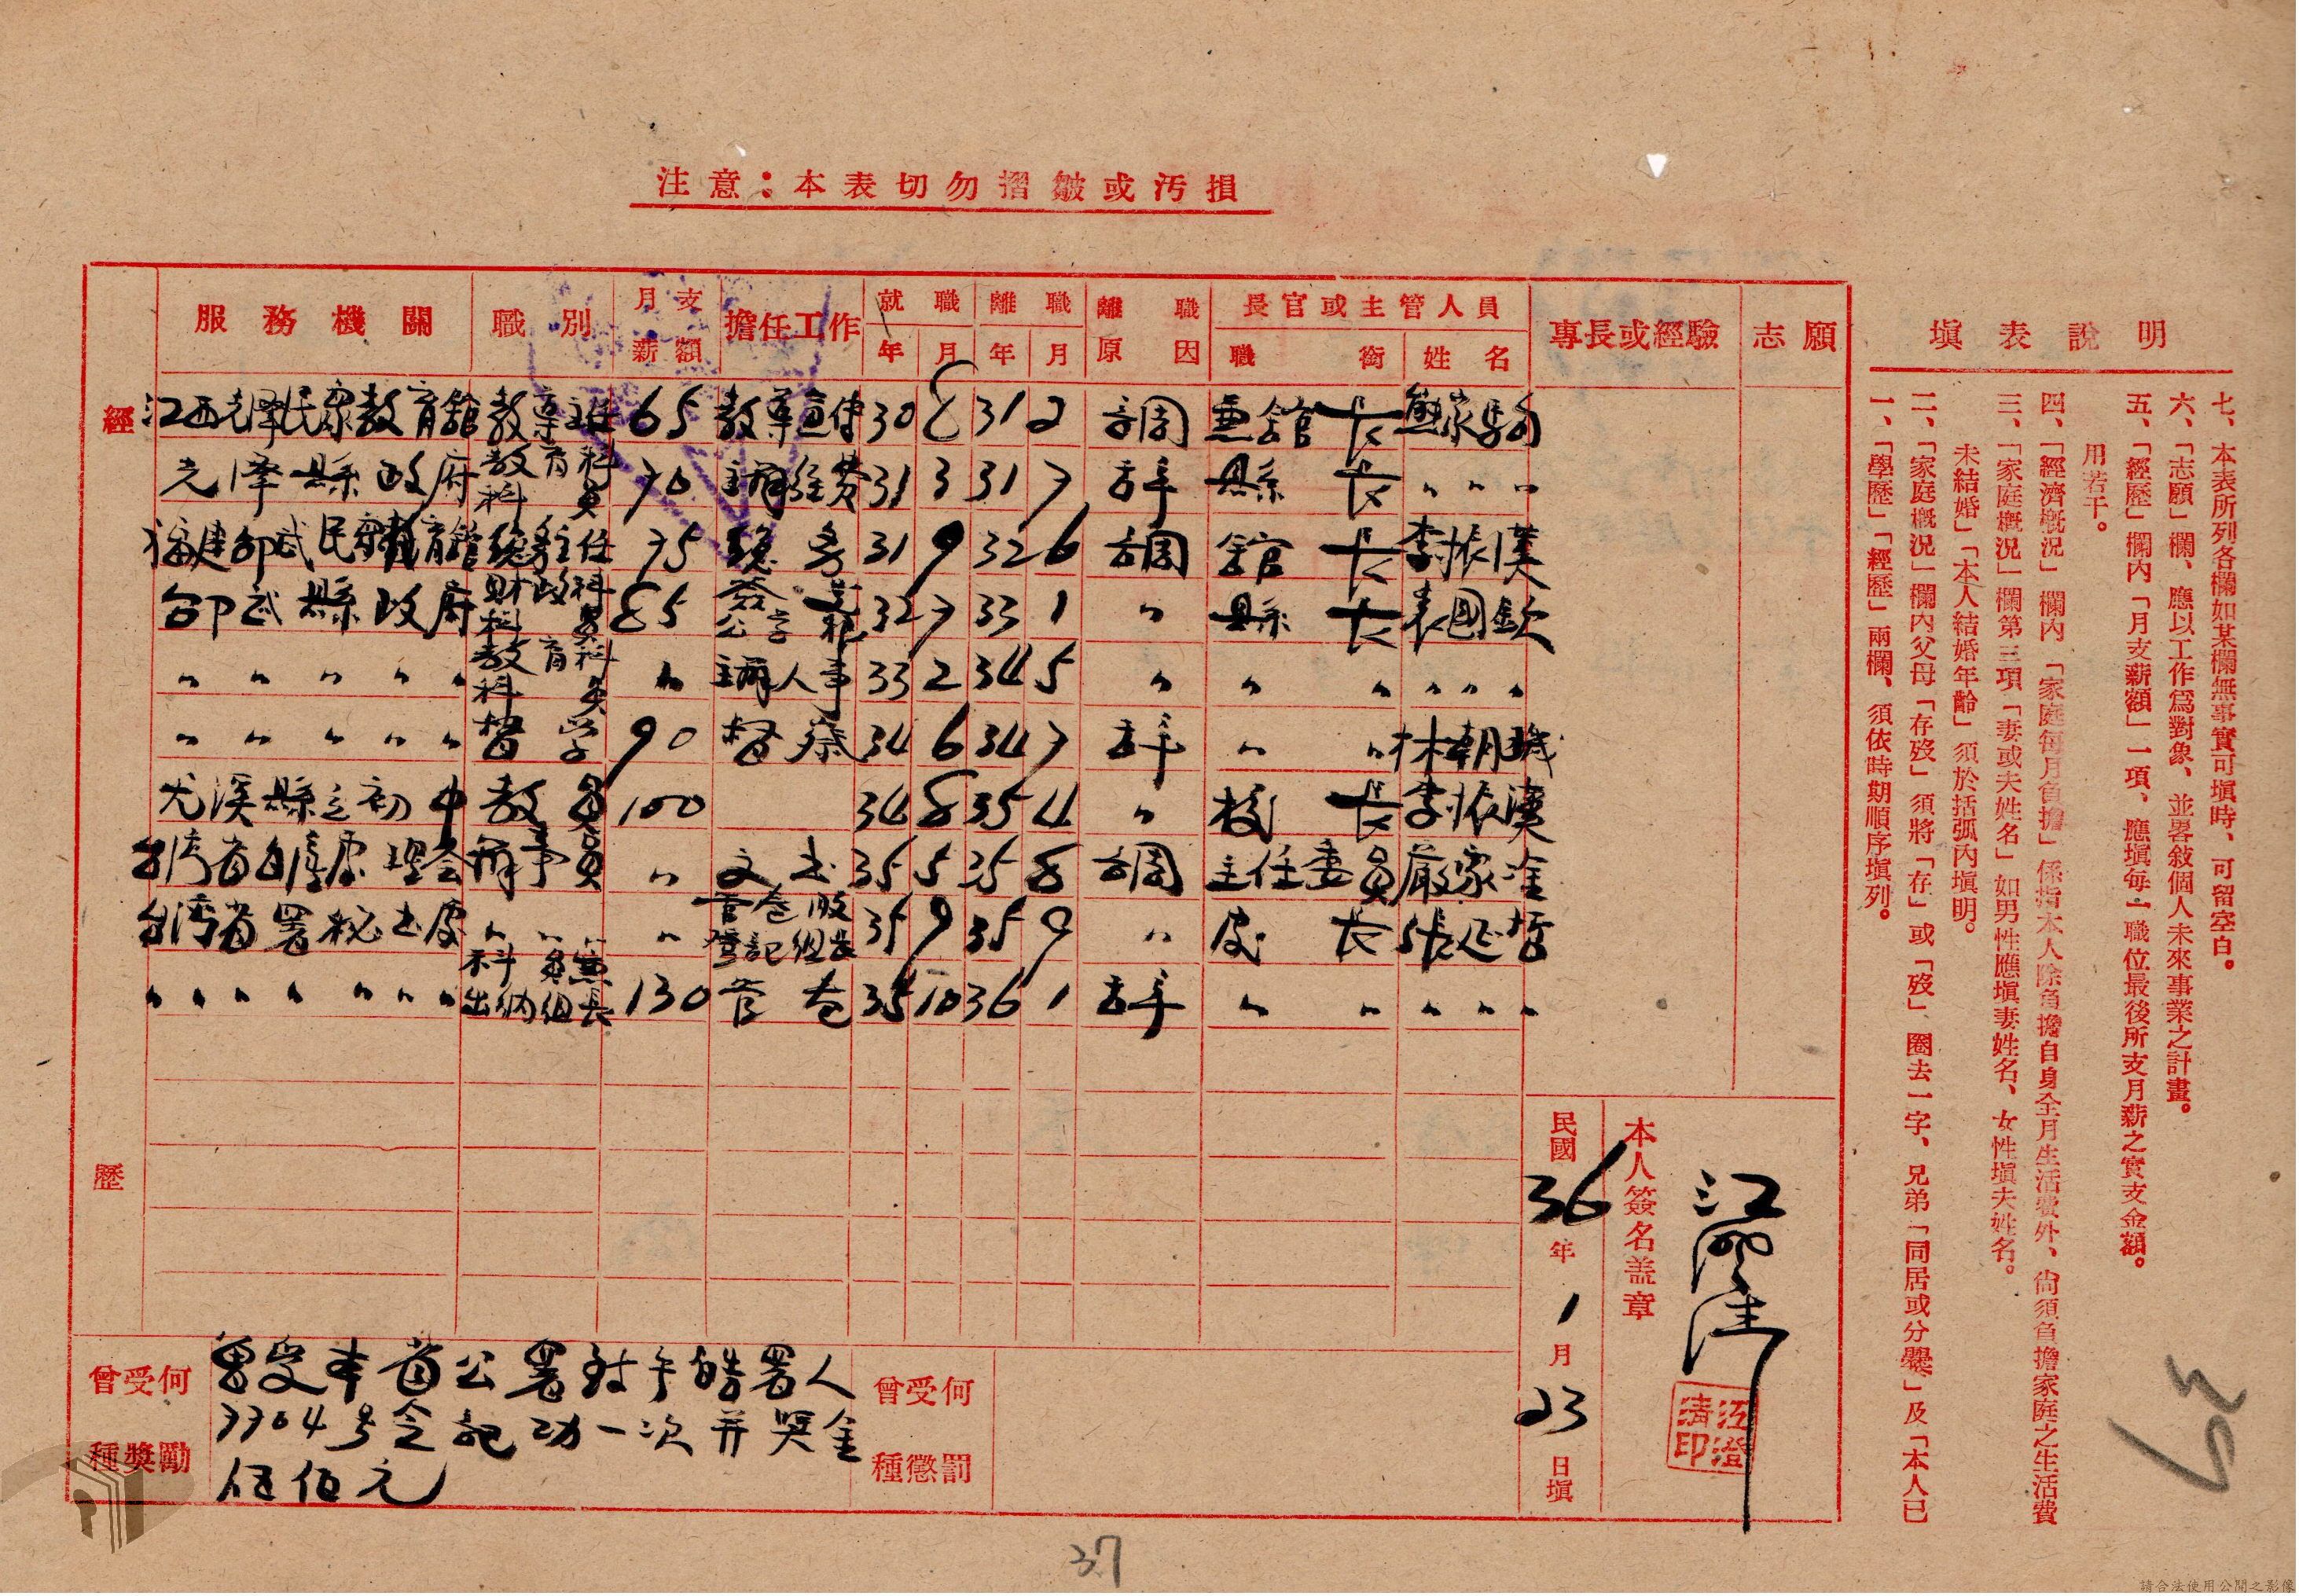 注意：本表切勿摺皺或汚損
經歷
服務機關 職別 月支薪額 擔任工作 就職年 月 離職年 月 離職原因 長官或主管人員 職銜 姓名 專長或經驗 志願
江西光澤民眾教育館 65 30 8 31 2 調 兼館長 熊家駒
光澤縣政府 教育科科員 70 31 3 31 7 辞 縣長 〃〃〃
福建邵武民眾教育館 總務主任 75 總务 31 9 32 6 調 館長 李振漢
邵武縣政府 財政科科員 85 32 7 33 1 〃 縣長 袁國欽
〃〃〃〃〃 教育科科員 〃 主辦人事 33 2 34 5 〃 〃〃 〃〃〃
〃〃〃〃〃 督学 90 督察 34 6 34 7 辞 〃〃 林朝
尤溪縣立初中 教員 100 34 8 35 4 〃 校長 李振漢
辦事員 〃 文书 35 5 35 8 調 主任委員 嚴家淦
台灣省署秘书處 〃〃〃 〃 登記組长 35 9 35 9 〃 處长 張延哲
〃〃〃〃〃〃〃〃 科員兼出納組長 130 管卷 35 10 36 1 辞 〃〃 〃〃〃
曾受何種獎勵
曾受本省公署
署人
7704号令記功一次并奨金
伍佰元
曾受何種懲罰
民國36年1月23日塡
本人簽名盖章
江澄清印
塡表說明
一、「學歷」「經歷」兩欄、須依時期順序塡列。
二、「家庭概况」欄內父母「存歿」須將「存」或「歿」圈去一字、兄弟「同居或分爨」及「本人已
未結婚」「本人結婚年齡」須於括弧內塡明。
三、「家庭概况」欄第三項「妻或夫姓名」如男性應塡妻姓名、女性塡夫姓名。
四、「經濟概况」欄內「家庭每月負擔」係指本人除負擔自身全月生活費外、尙須負擔家庭之生活費
用若干。
五、「經歷」欄內「月支薪額」一項、應塡每一職位最後所支月薪之實支金額。
六、「志願」欄、應以工作爲對象、並畧敍個人未來事業之計畫。
七、本表所列各欄如某欄無事實可塡時、可留空白。
37
請合法使用公開之影像